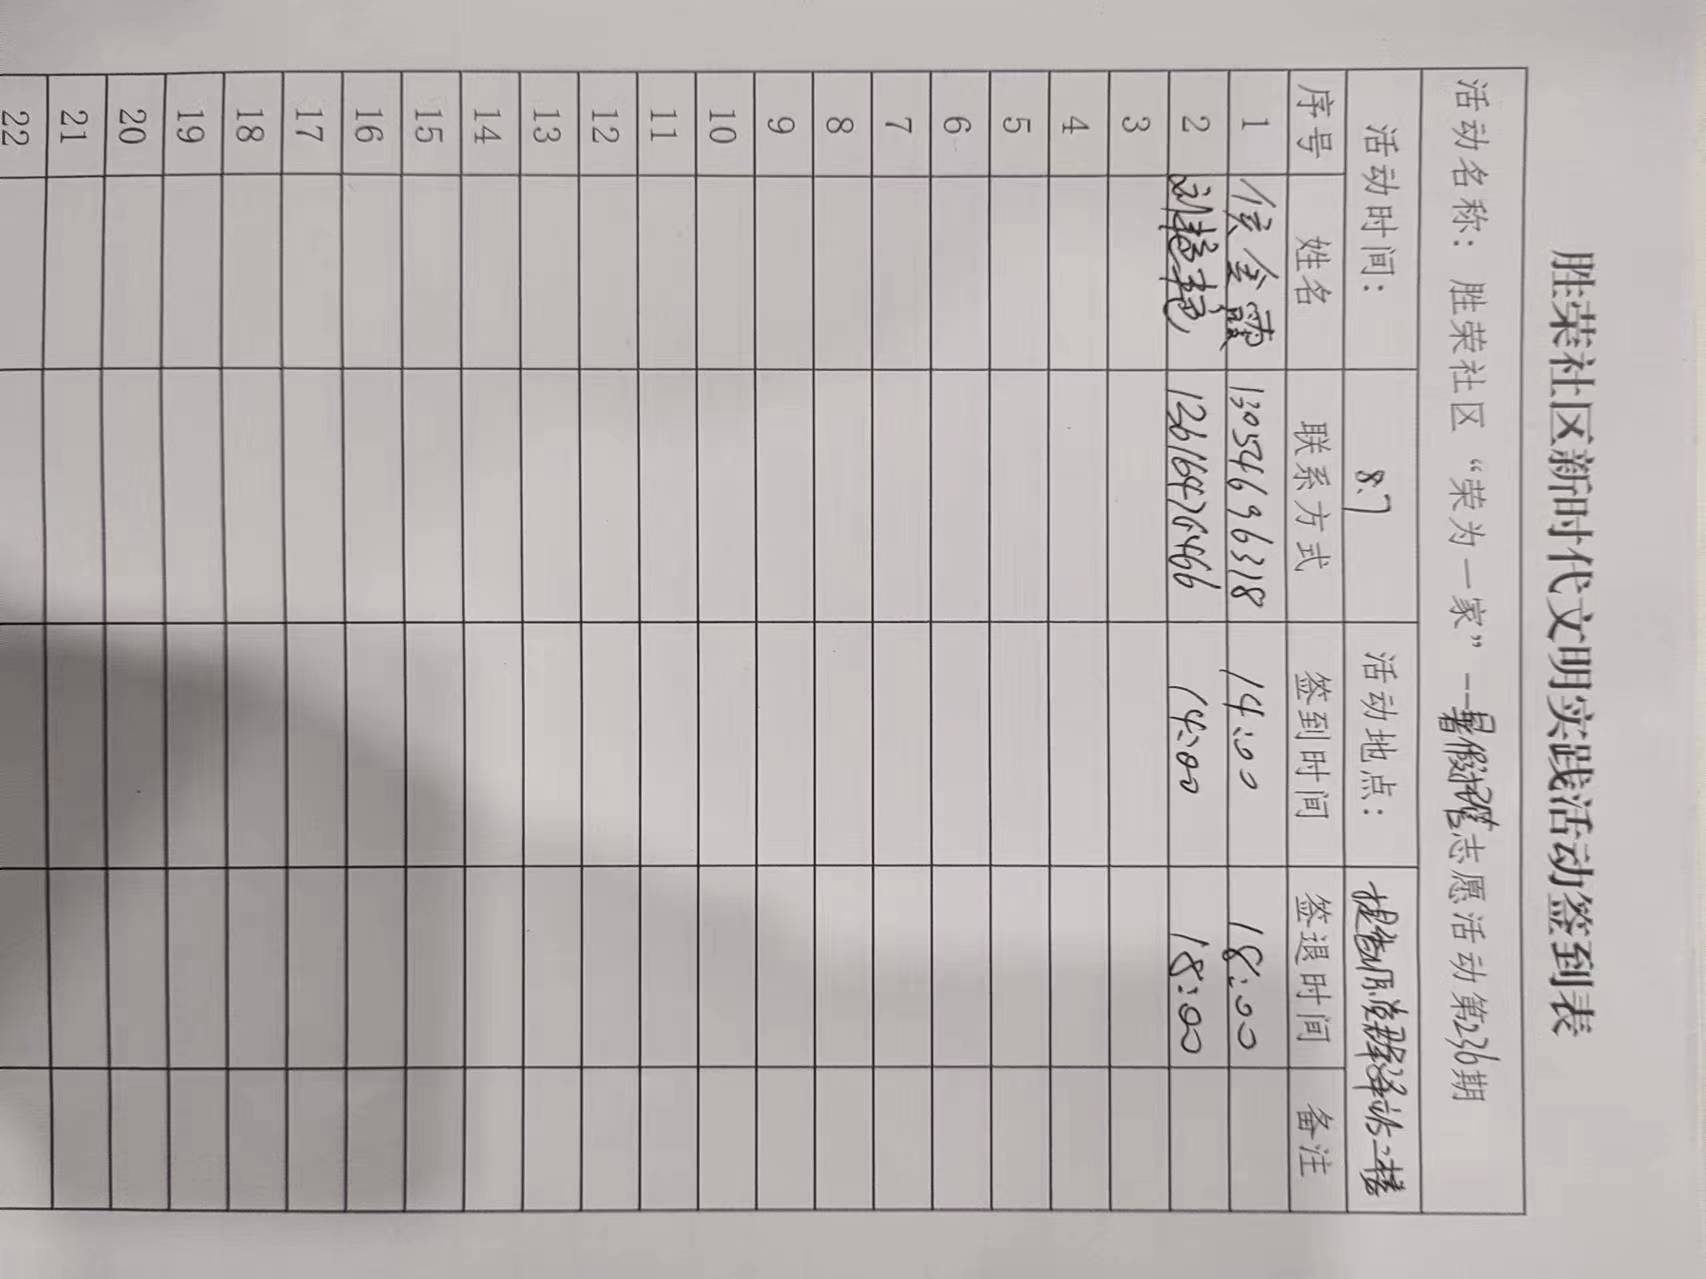 胜荣社区新时代文明实践活动签到表
活动名称： 胜荣社区“荣为一家”--暑假托管志愿活动第236期
活动时间： 8.7 活动地点： 二楼
序号 姓名 联系方式 签到时间 签退时间 备注
1 侯金霞 13054696318 14:00 18:00
2 刘艳艳 14:00 18:00
3
4
5
6
7
8
9
10
11
12
13
14
15
16
17
18
19
20
21
22